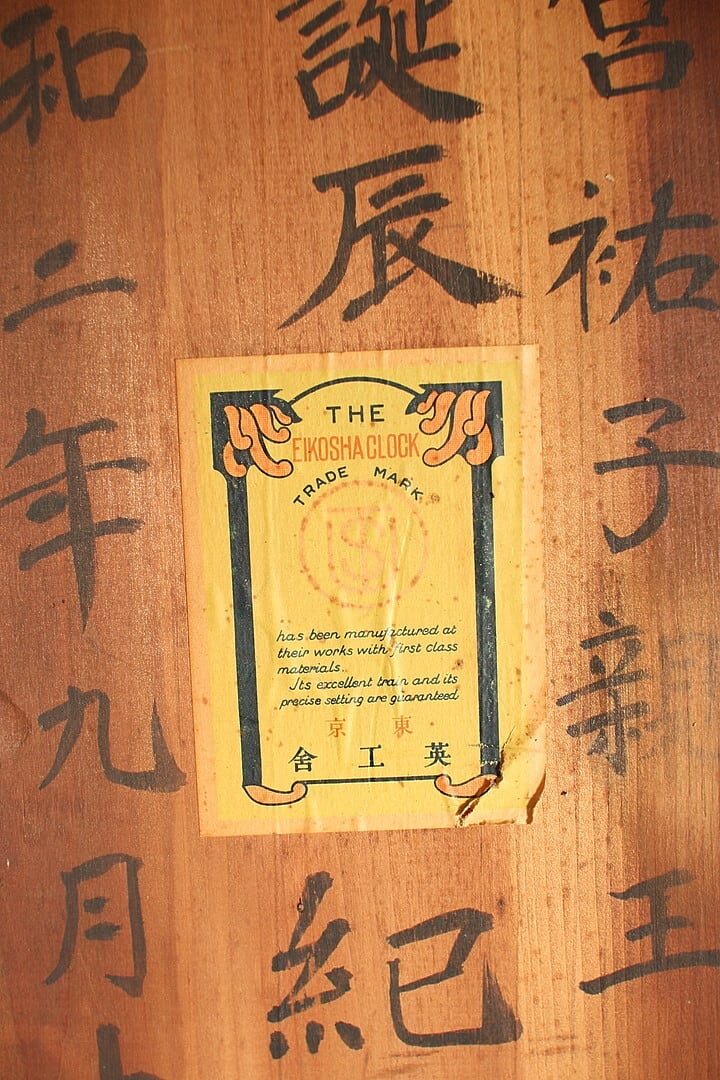 宮祐子親王
誕辰
紀
和二年九月
THE
EIKOSHA CLOCK
TRADE MARK
has been manufactured at
their works with first class
materials.
Its excellent train and its
precise setting are guaranteed
東京
英工舎